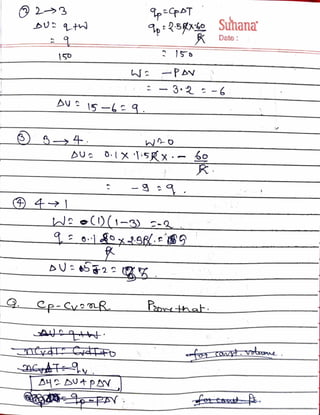 ② 2→3 qp = CpΔT Suhana
ΔU = q+W qp = 2.5R × 60/R Date :
= q
150 = 150
W = - PΔV
= - 3·2 = -6
ΔU = 15-6 = 9.
③ 3→4. W=0
ΔU = 0.1 × 1.5R × - 60/R
= -9 = q.
④ 4→1
W = (1)(1-3) = -2
q = 0.1
ΔU = 5-2 =
Q. Cp-Cv=nR Prove that.
ΔU = q+W.
nCvdT = CvdT+0 for const. volume.
nCvΔT = qv
ΔH = ΔU + PΔV
= qp - PΔV. for const P.